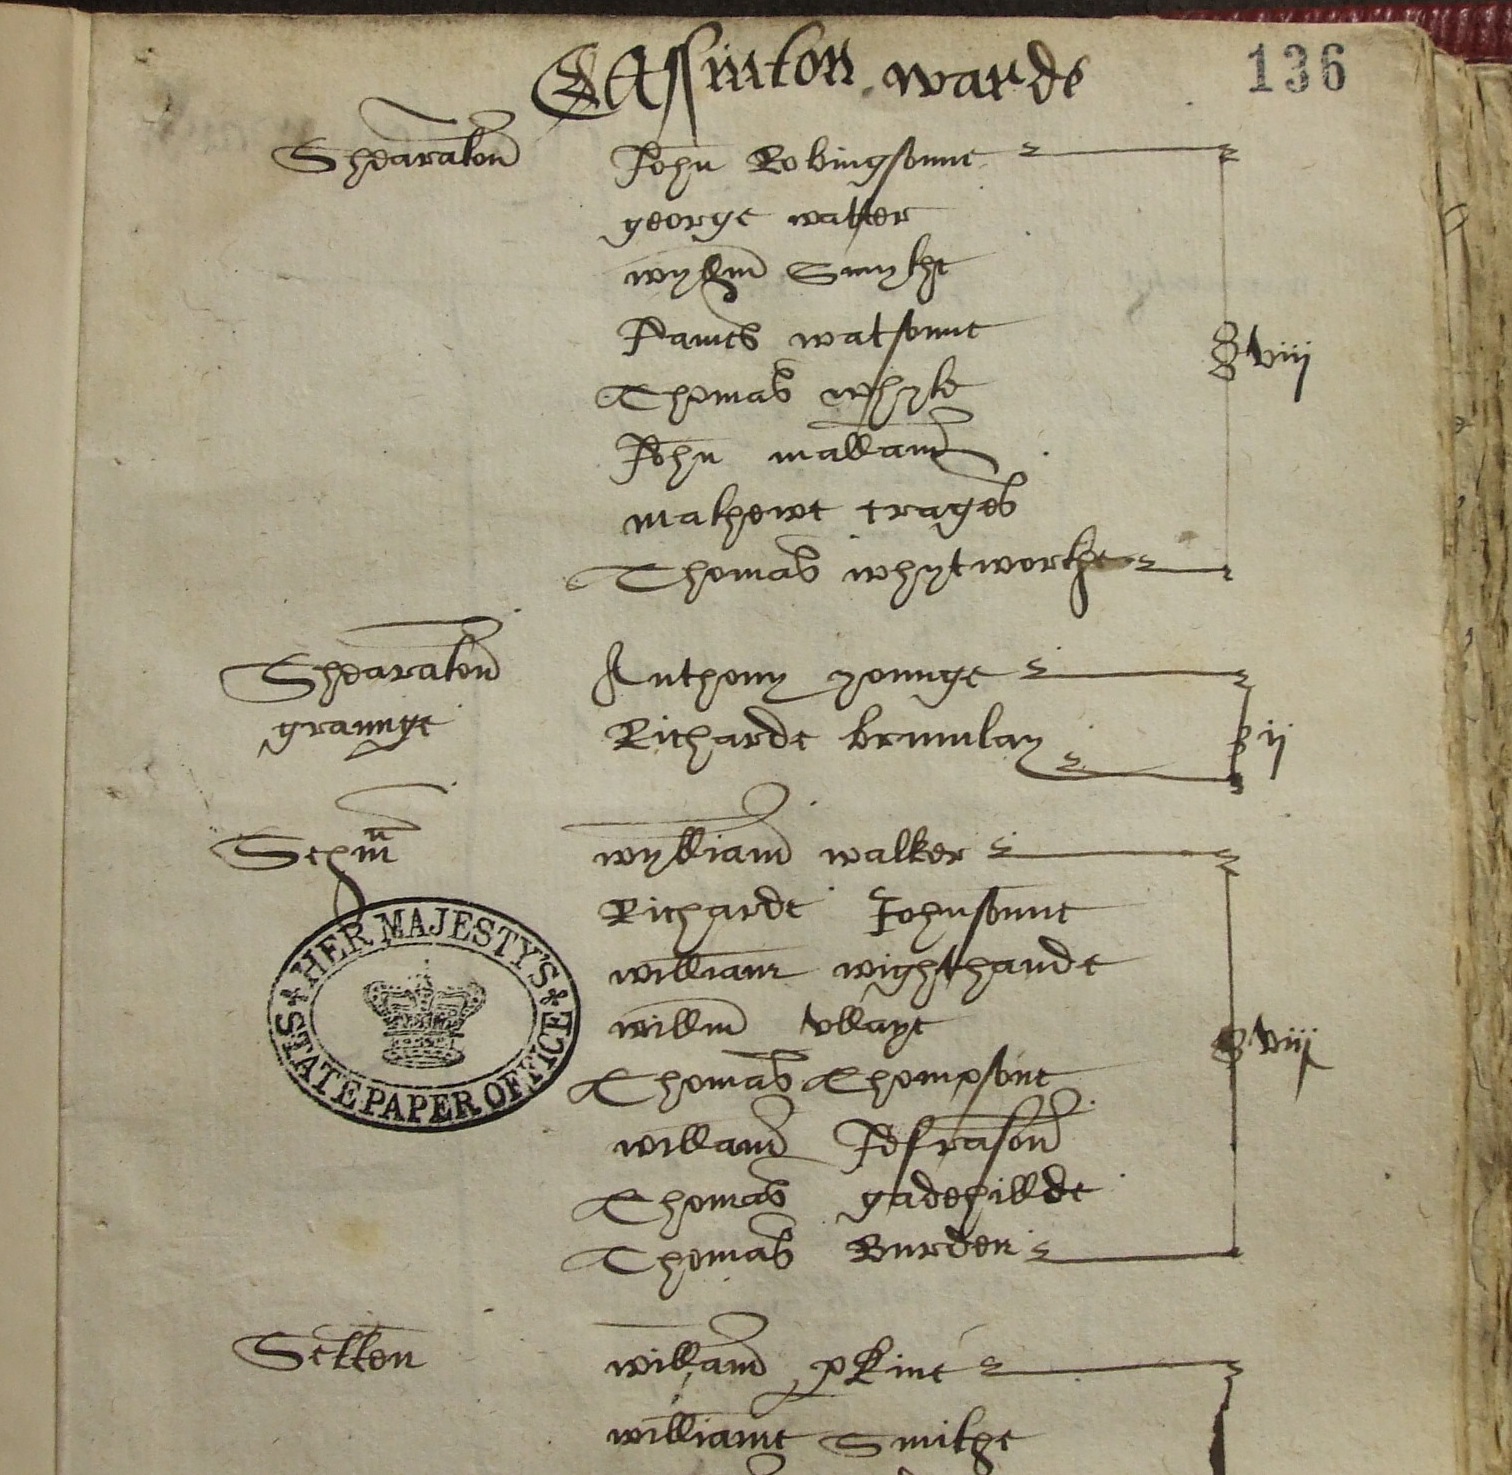 EAssinton warde 136
Shearaton John Robingsonne
george walter
wyllm Smythe
James watsonne
Thomas whyte
John mallam
mathewe trages
Thomas whytworthe
viij
Shearaton Anthony younge
graunge Richarde brumlay
ij
wylliam walker
Richarde Johnsonne
william wighthande
willm vllaye
Thomas Thompsone
willam Jefrason
Thomas gadehillde
Thomas Burden
viij
HER MAJESTY'S STATE PAPER OFFICE
Setton willam pkine
williame Smithe